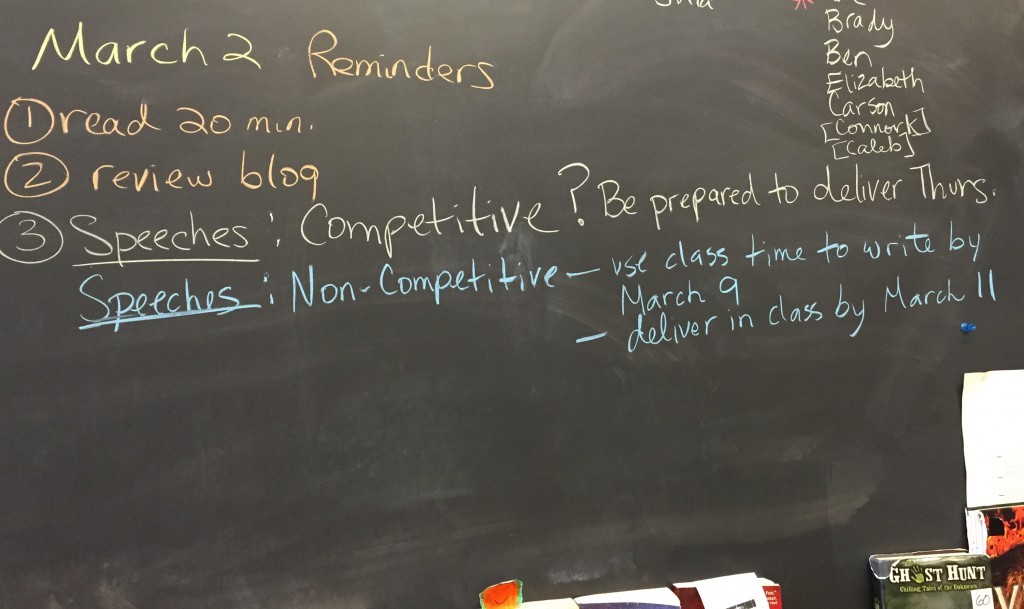 March 2 Reminders
① read 20 min.
② review blog
③ Speeches: Competitive? Be prepared to deliver Thurs.
Speeches: Non-Competitive – use class time to write by
March 9
– deliver in class by March 11
*
Brady
Ben
Elizabeth
Carson
[Connor K]
[Caleb]
GHOST HUNT
Chilling Tales of the Unknown